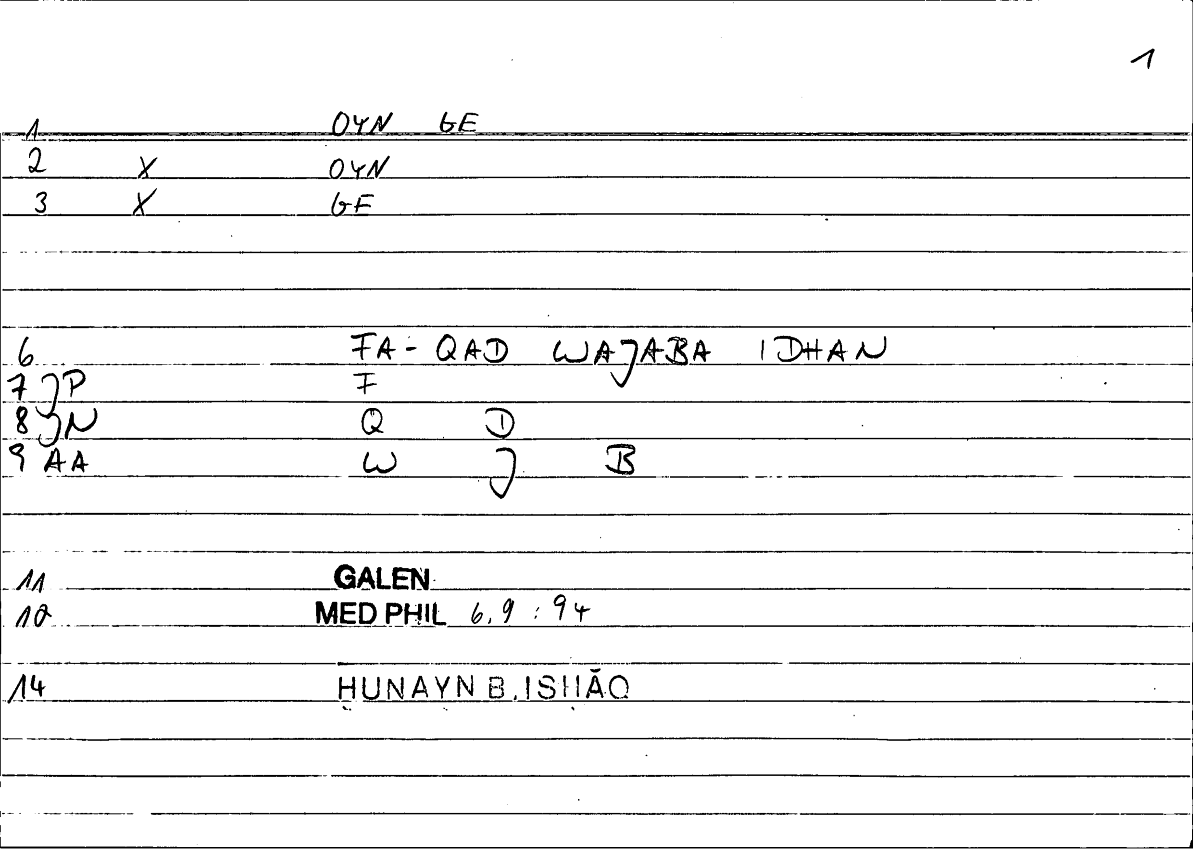 1
1 OYN GE
2 X OYN
3 X GE
6 FA- QAD WAJABA IDHAN
7 JP F
8 JN Q D
9 AA W J B
11 GALEN
12 MED PHIL 6.9 : 94
14 ḤUNAYN B. ISḤĀQ